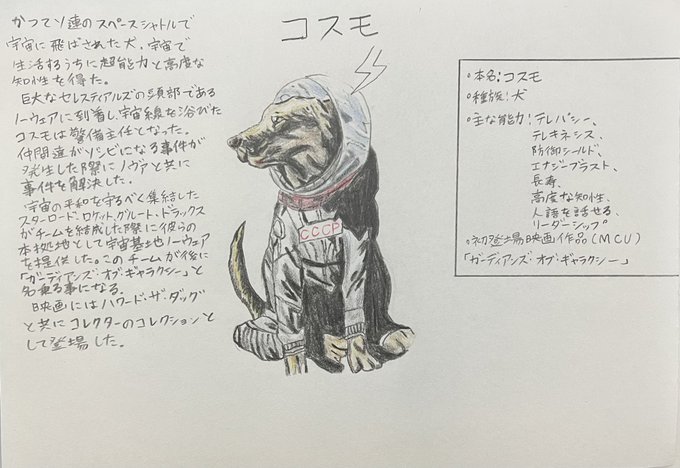 コスモ
かつてソ連のスペースシャトルで
宇宙に飛ばされた犬。宇宙で
生活するうちに超能力と高度な
知性を得た。
巨大なセレスティアルズの頭部である
ノーウェアに到着し、宇宙線を浴びた
コスモは警備主任となった。
仲間達がゾンビになる事件が
発生した際にノヴァと共に
事件を解決した。
宇宙の平和を守るべく集結した
スターロード、ロケット、グルート、ドラックス
がチームを結成した際に彼らの
本拠地として宇宙基地ノーウェア
を提供した。このチームが後に
「ガーディアンズ・オブ・ギャラクシー」と
名乗る事になる。
映画にはハワード・ザ・ダッグ
と共にコレクターのコレクションと
して登場した。
CCCP
○本名:コスモ
○種族:犬
○主な能力:テレパシー、
テレキネシス、
防御シールド、
エナジーブラスト、
長寿、
高度な知性、
人語を話せる、
リーダーシップ
○初登場映画作品(MCU)
「ガーディアンズ・オブ・ギャラクシー」